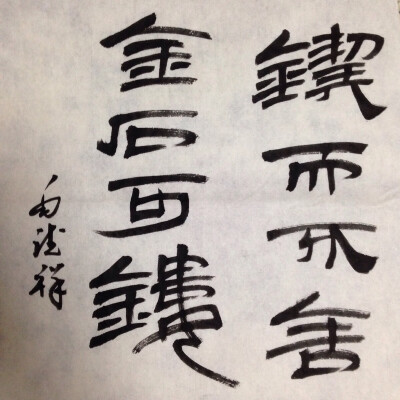 鍥而不舍
金石可鏤